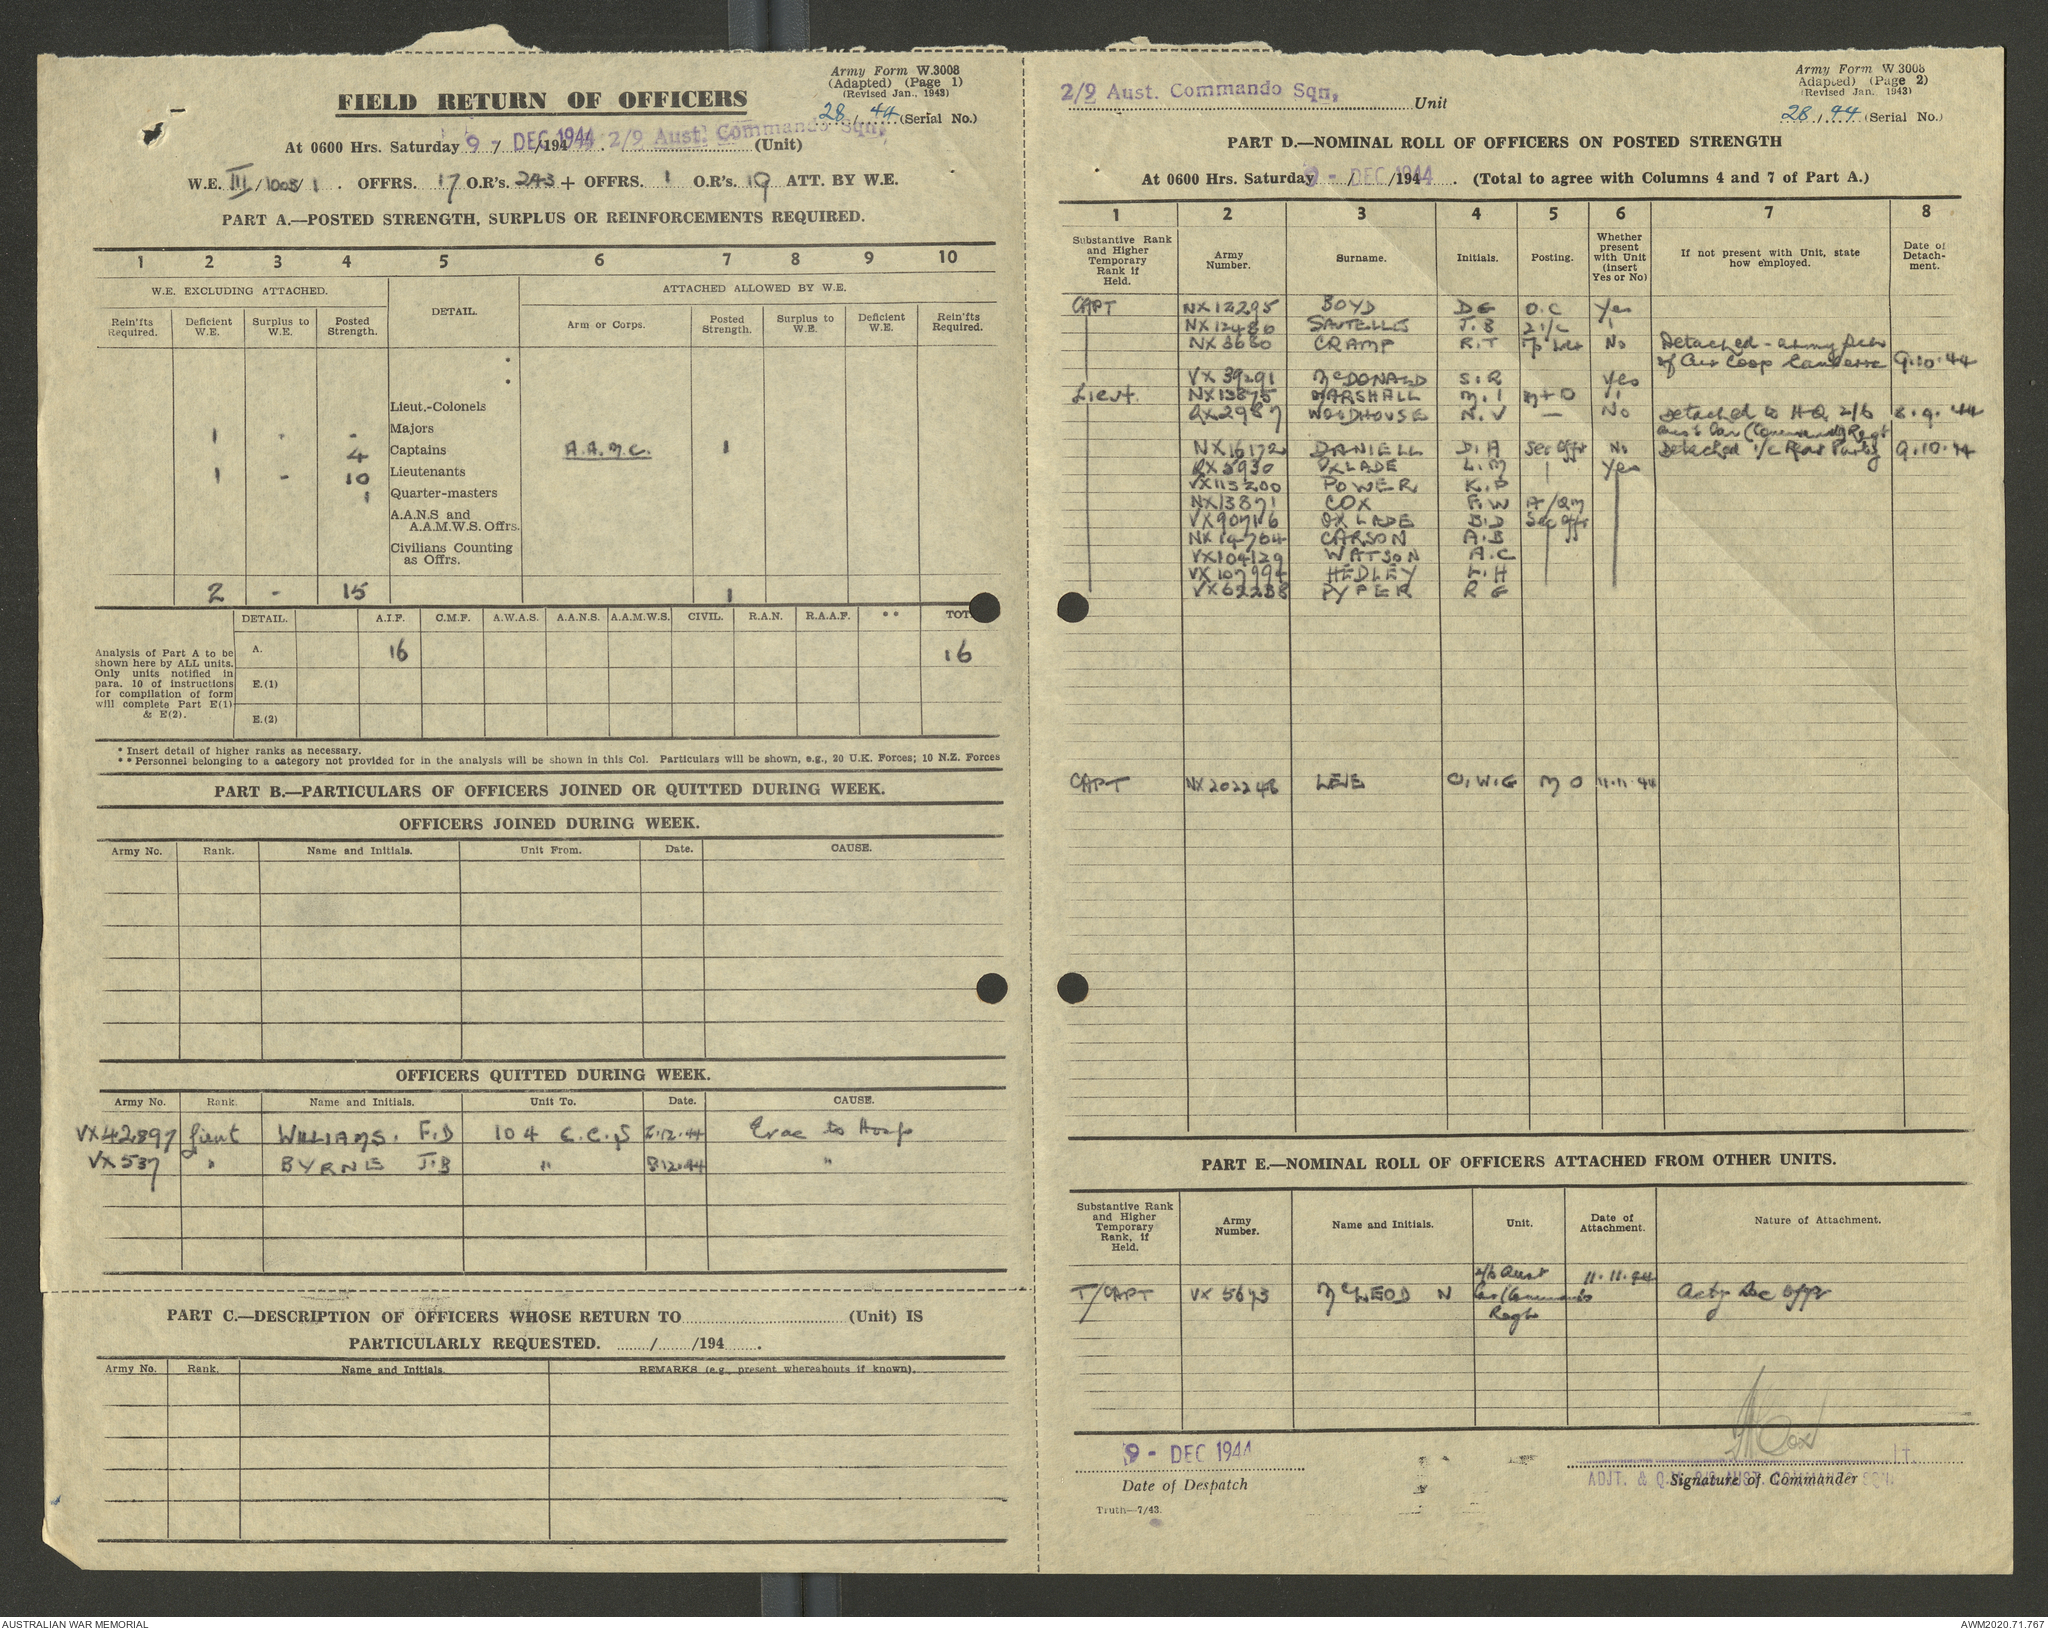 Army Form W.3008
(Adapted) (Page 1)
(Revised Jan., 1943)
FIELD RETURN OF OFFICERS
28 / 44 (Serial No.)
At 0600 Hrs. Saturday 9 - DEC 1944 /194 . 2/9 Aust. Commando Sqn, (Unit)
W.E. III/1003/1 . OFFRS. 17 O.R's. 243 + OFFRS. 1 O.R's. 19 ATT. BY W.E.
PART A.—POSTED STRENGTH, SURPLUS OR REINFORCEMENTS REQUIRED.
1 2 3 4 5 6 7 8 9 10
W.E. EXCLUDING ATTACHED. DETAIL. ATTACHED ALLOWED BY W.E.
Rein'fts Required. Deficient W.E. Surplus to W.E. Posted Strength. Arm or Corps. Posted Strength. Surplus to W.E. Deficient W.E. Rein'fts Required.
Lieut.-Colonels
1 - - Majors
4 Captains A.A.M.C. 1
1 - 10 Lieutenants
1 Quarter-masters
A.A.N.S and A.A.M.W.S. Offrs.
Civilians Counting as Offrs.
2 - 15 1
DETAIL. A.I.F. C.M.F. A.W.A.S. A.A.N.S. A.A.M.W.S. CIVIL. R.A.N. R.A.A.F. ** TOT
Analysis of Part A to be
shown here by ALL units.
Only units notified in
para. 10 of instructions
for compilation of form
will complete Part E(1)
& E(2).
A. 16 16
E.(1)
E.(2)
* Insert detail of higher ranks as necessary.
** Personnel belonging to a category not provided for in the analysis will be shown in this Col. Particulars will be shown, e.g., 20 U.K. Forces; 10 N.Z. Forces
PART B.—PARTICULARS OF OFFICERS JOINED OR QUITTED DURING WEEK.
OFFICERS JOINED DURING WEEK.
Army No. Rank. Name and Initials. Unit From. Date. CAUSE.
OFFICERS QUITTED DURING WEEK.
Army No. Rank. Name and Initials. Unit To. Date. CAUSE.
VX42897 Lieut WILLIAMS. F.D 104 C.C.S .12.44 Evac to Hosp
VX537 " BYRNE J.B " 8.12.44 "
PART C.—DESCRIPTION OF OFFICERS WHOSE RETURN TO (Unit) IS
PARTICULARLY REQUESTED. / /194 .
Army No. Rank. Name and Initials. REMARKS (e.g., present whereabouts if known).
Army Form W.3008
Adapted) (Page 2)
(Revised Jan. 1943)
2/9 Aust. Commando Sqn, Unit
28 / 44 (Serial No.)
PART D.—NOMINAL ROLL OF OFFICERS ON POSTED STRENGTH
At 0600 Hrs. Saturday 9 - DEC 1944 /194 . (Total to agree with Columns 4 and 7 of Part A.)
1 2 3 4 5 6 7 8
Substantive Rank and Higher Temporary Rank if Held. Army Number. Surname. Initials. Posting. Whether present with Unit (insert Yes or No) If not present with Unit, state how employed. Date of Detachment.
CAPT NX12295 BOYD D E O.C Yes
NX12486 SAUTELLE J.B 2 i/c "
NX3630 CRAMP R.T No Detached - Army
of Air Coop Canberra 9.10.44
VX39291 McDONALD S.R Yes
Lieut. NX13875 MARSHALL M.I "
QX2987 WOODHOUSE N.V — No Detached to HQ 2/6 8.9.44
Aust Cav (Commando) Regt
NX16172 DANIELL D.A Sec Offr No Detached i/c Rear Party 9.10.44
QX5930 OXLADE L.M Yes
VX113200 POWER K.P
NX13871 COX F.W A/QM
VX90716 OXLADE B.D Sec Offr
NX14764 CARSON A.B
VX104129 WATSON A.C
VX107994 HEDLEY L.H
VX62238 PYPER R E
CAPT NX202248 LEE O.W.G M O 11.11.44
PART E.—NOMINAL ROLL OF OFFICERS ATTACHED FROM OTHER UNITS.
Substantive Rank and Higher Temporary Rank, if Held. Army Number. Name and Initials. Unit. Date of Attachment. Nature of Attachment.
T/CAPT VX5673 McLEOD N 2/6 Aust Cav (Commando) Regt 11.11.44 Actg Sec Offr
9 - DEC 1944
Date of Despatch
Cox LT.
ADJT. & Q.M. 2/9 AUST. COMMANDO SQN.
Signature of Commander
Truth—7/43.
AUSTRALIAN WAR MEMORIAL
AWM2020.71.767